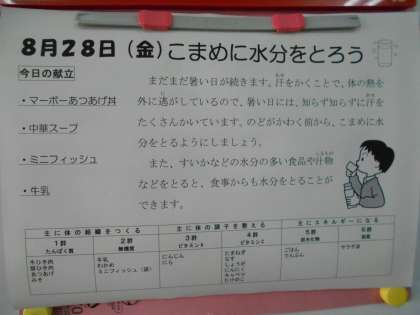 8月28日（金）こまめに水分をとろう
今日の献立
・マーボーあつあげ丼
・中華スープ
・ミニフィッシュ
・牛乳
まだまだ暑い日が続きます。汗をかくことで、体の熱を
外に逃がしているので、暑い日には、知らず知らずに汗を
たくさんかいています。のどがかわく前から、こまめに水
分をとるようにしましょう。
また、すいかなどの水分の多い食品や汁物
などをとると、食事からも水分をとることが
できます。
主に体の組織をつくる 主に体の調子を整える 主にエネルギーになる
1群 2群 3群 4群 5群 6群
たんぱく質 無機質 ビタミンA ビタミンC 炭水化物 脂肪
牛ひき肉 牛乳 にんじん たまねぎ ごはん サラダ油
豚ひき肉 わかめ にら なす でんぷん
あつあげ ミニフィッシュ しょうが
みそ にんにく
キャベツ